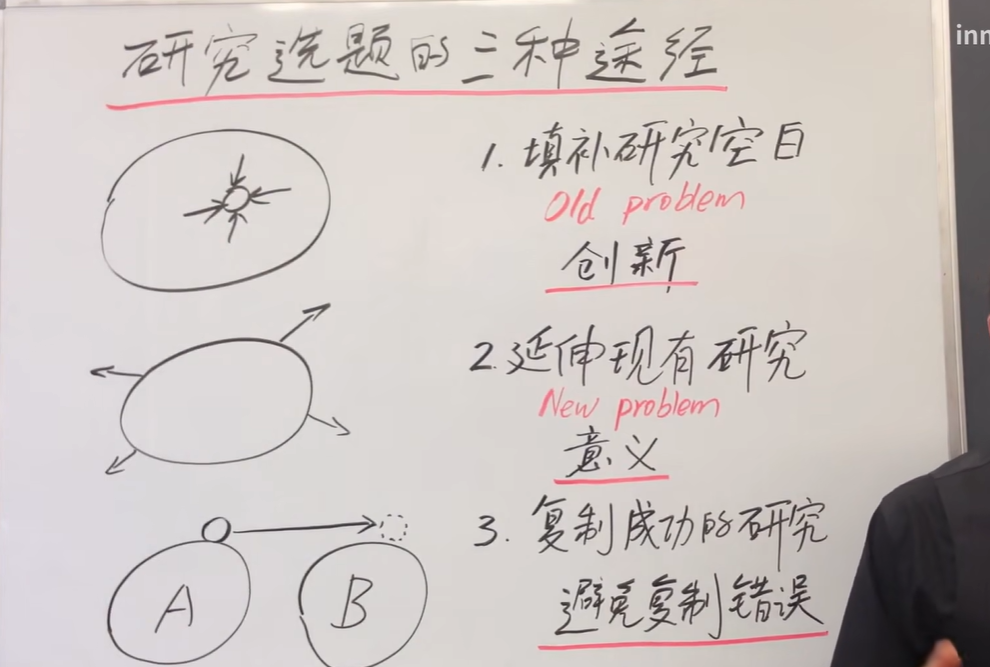 研究选题的三种途经
inn
1. 填补研究空白
Old problem
创新
2. 延伸现有研究
New problem
意义
3. 复制成功的研究
避免复制错误
A
B